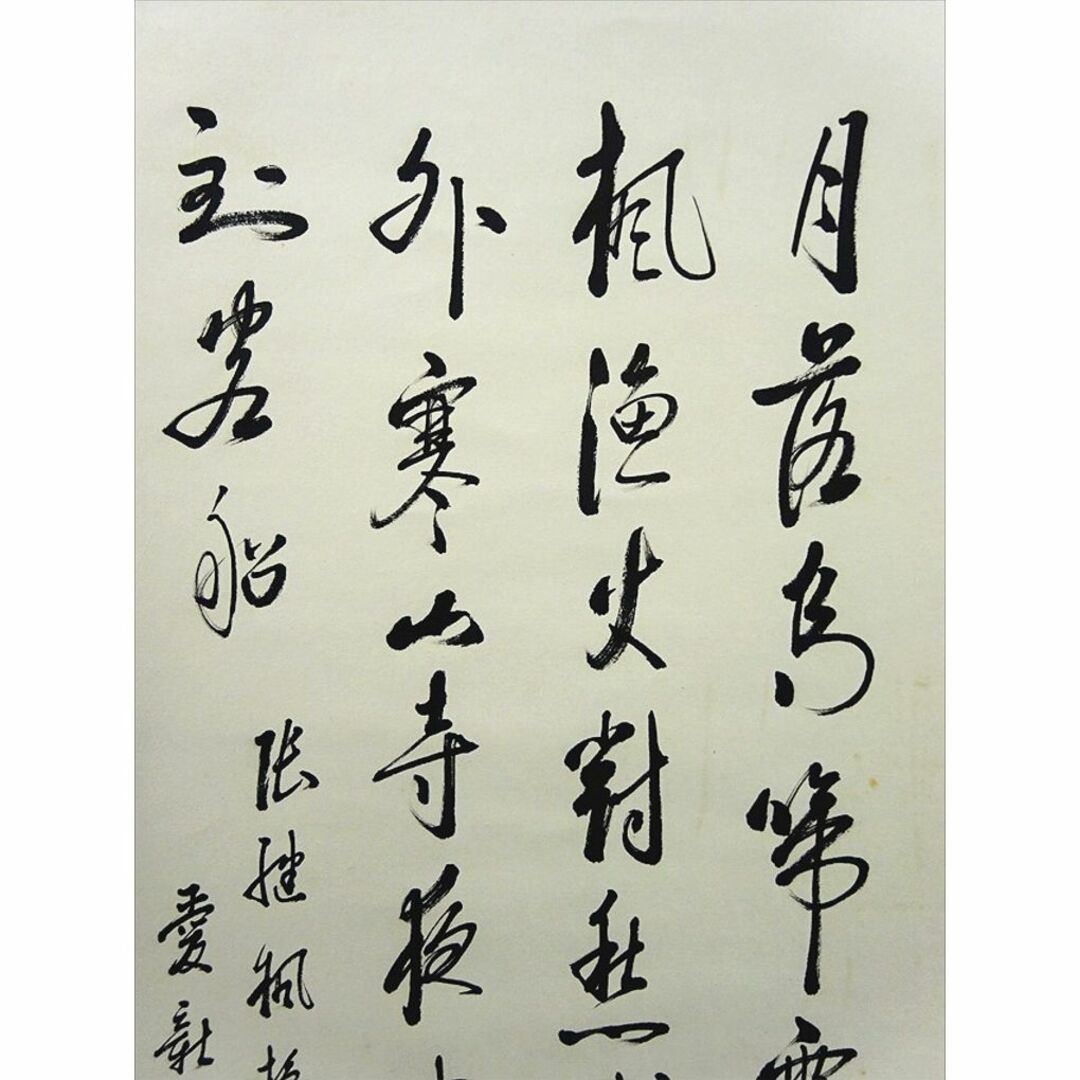 月落烏啼霜
楓漁火對愁
外寒山寺夜
到客船
張繼楓橋
愛新